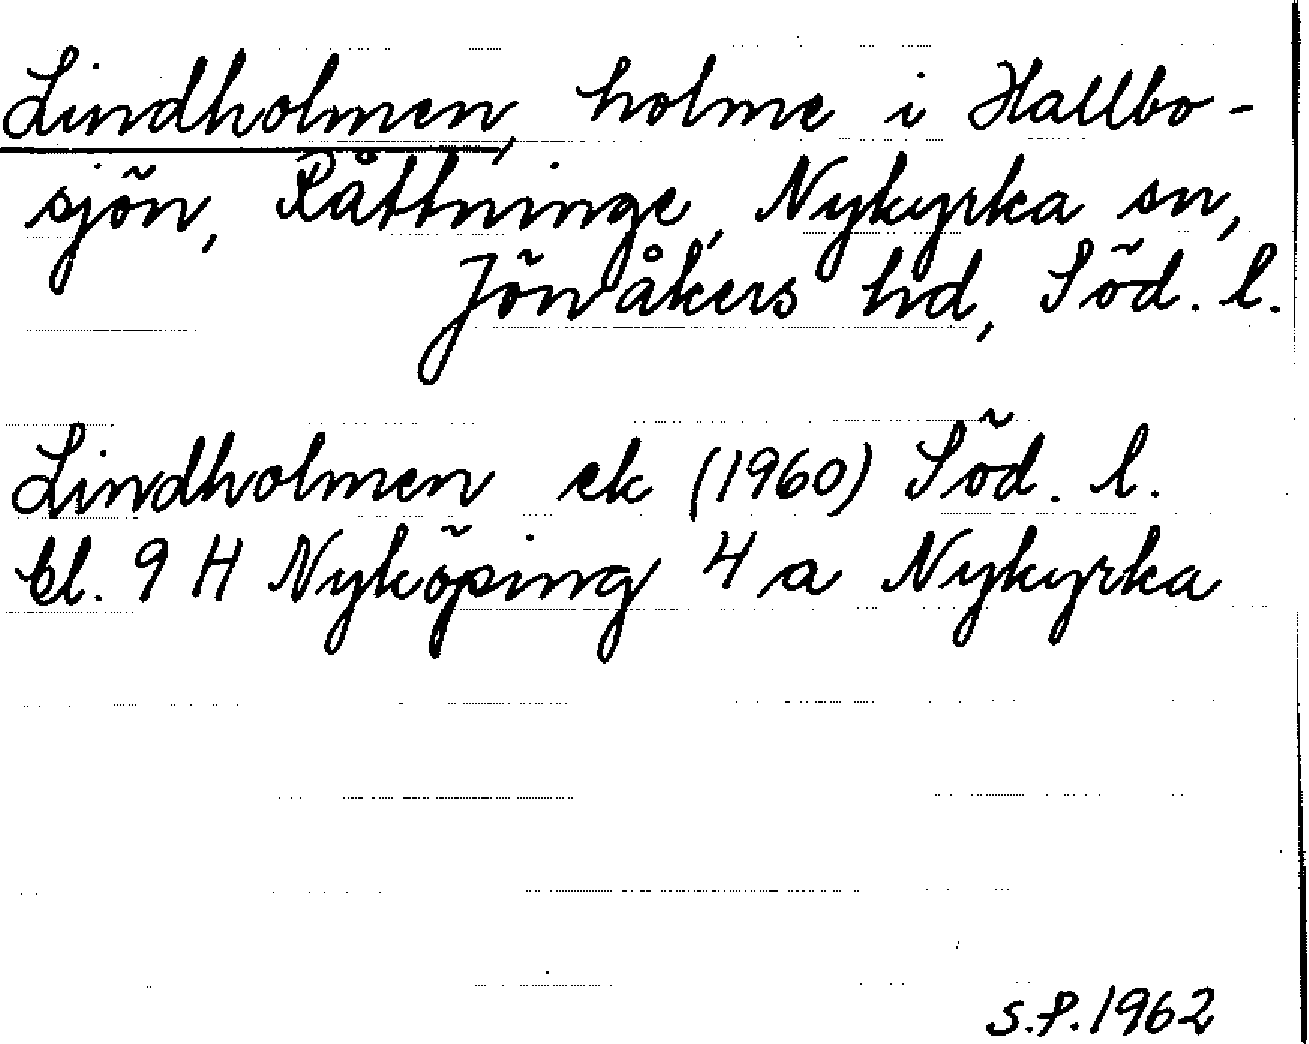 Lindholmen, holme i Hallbo-
sjön, Råttninge, Nykyrka sn,
Jönåkers hd, Söd. l.
Lindholmen ek (1960) Söd. l.
bl. 9 H Nyköping 4 a Nykyrka
S.P. 1962